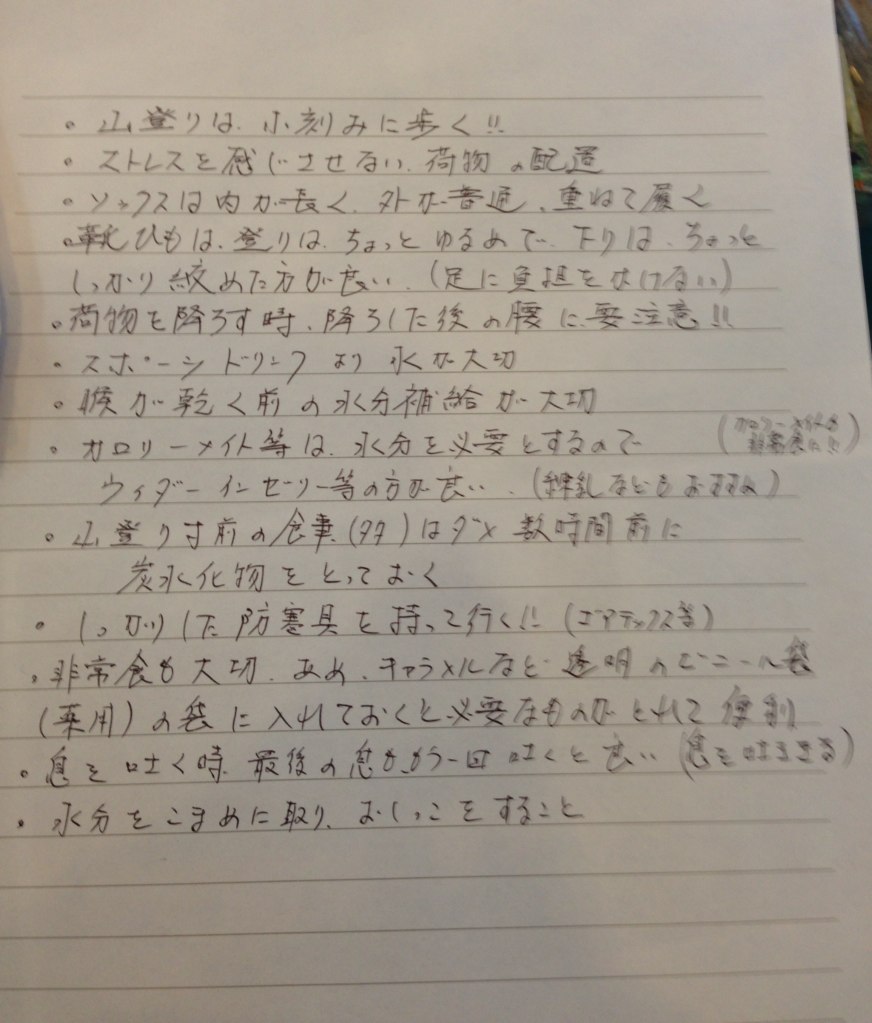 ・山登りは、小刻みに歩く!!
・ストレスを感じさせない、荷物の配置
・ソックスは内が長く、外が普通、重ねて履く
・靴ひもは、登りは、ちょっとゆるめで、下りは、ちょっと
しっかり絞めた方が良い、(足に負担をかけない)
・荷物を降ろす時、降ろした後の腰に、要注意!!
・スポーツドリンクより水が大切
・喉が乾く前の水分補給が大切
・カロリーメイト等は、水分を必要とするので (カロリーメイトも
非常食に!!)
ウィダーインゼリー等の方が良い、(練乳などもおすすめ)
・山登り寸前の食事、()はダメ 数時間前に
炭水化物をとっておく
・しっかりした防寒具を持って行く!! (ゴアテックス等)
・非常食も大切、あめ、キャラメルなど透明のビニール袋
(薬用)の袋に入れておくと必要なものがとれて便利
・息を吐く時、最後の息から、もう一回吐くと良い (息を吐ききる)
・水分をこまめに取り、おしっこをすること